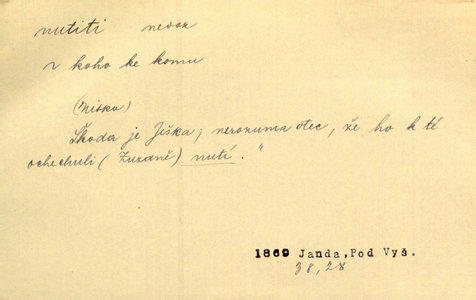 nutiti nedok
koho ke komu
(Jiřka)
Škoda je Jiřka; nerozuma otec, že ho k té
ochechuli (Zuzaně) nutí."
1869 Janda, Pod Vyš.
38, 28